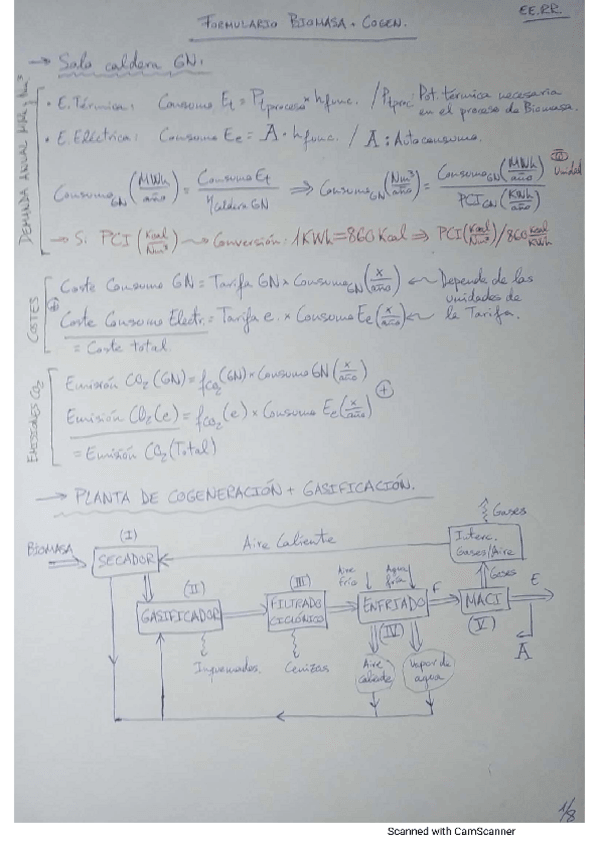 EE.RR.
FORMULARIO BIOMASA + COGEN.
→ Solo caldera GN:
DEMANDA ANUAL MWh, Nm³
• E. Térmica: Consumo Et = Ptproceso * hfunc. / Ptproc: Pot. térmica necesaria
en el proceso de Biomasa.
• E. Eléctrica: Consumo Ee = A · hfunc. / A : Autoconsumo.
Consumo GN (MWh/año) = Consumo Et / ηcaldera GN ⇒ Consumo GN (Nm³/año) = Consumo GN (MWh/año) / PCI GN (KWh/año)
Unidad
→ Si PCI (Kcal/Nm³) ⇝ Conversión: 1KWh=860Kcal ⇒ PCI(Kcal/Nm³)/860 Kcal/KWh
COSTES
Coste Consumo GN = Tarifa GN × Consumo GN (x/año) ← Depende de las
unidades de
⊕
Coste Consumo Electr. = Tarifa e. × Consumo Ee (x/año) ← la Tarifa.
= Coste total.
EMISIONES CO₂
Emisión CO₂ (GN) = fCO₂ (GN) × Consumo GN (x/año)
⊕
Emisión CO₂ (e) = fCO₂ (e) × Consumo Ee (x/año)
= Emisión CO₂ (Total)
→ PLANTA DE COGENERACIÓN + GASIFICACIÓN.
Gases
BIOMASA
(I)
SECADOR
Aire Caliente
Interc.
Gases/Aire
Gases
(II)
GASIFICADOR
(III)
FILTRADO
CICLÓNICO
Aire
frío
Agua
fría
ENFRIADO
(IV)
F
MACI
(V)
E
A
Inquemados.
Cenizas
Aire
caliente
Vapor de
agua
1/8
Scanned with CamScanner